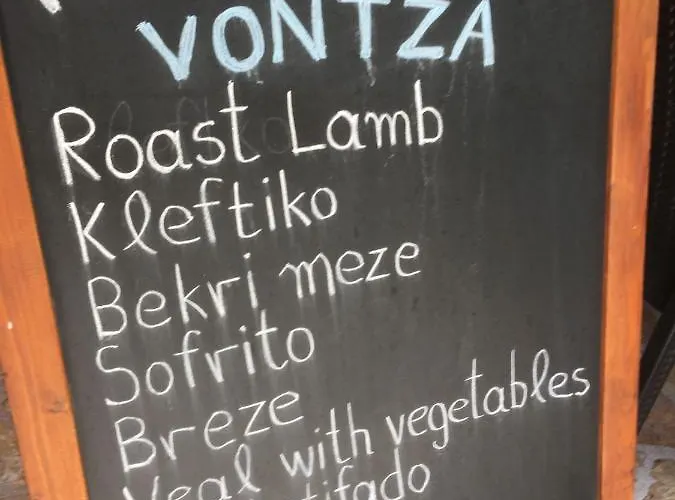 VONTZA
Roast Lamb
Kleftiko
Bekri meze
Sofrito
Breze
Veal with vegetables